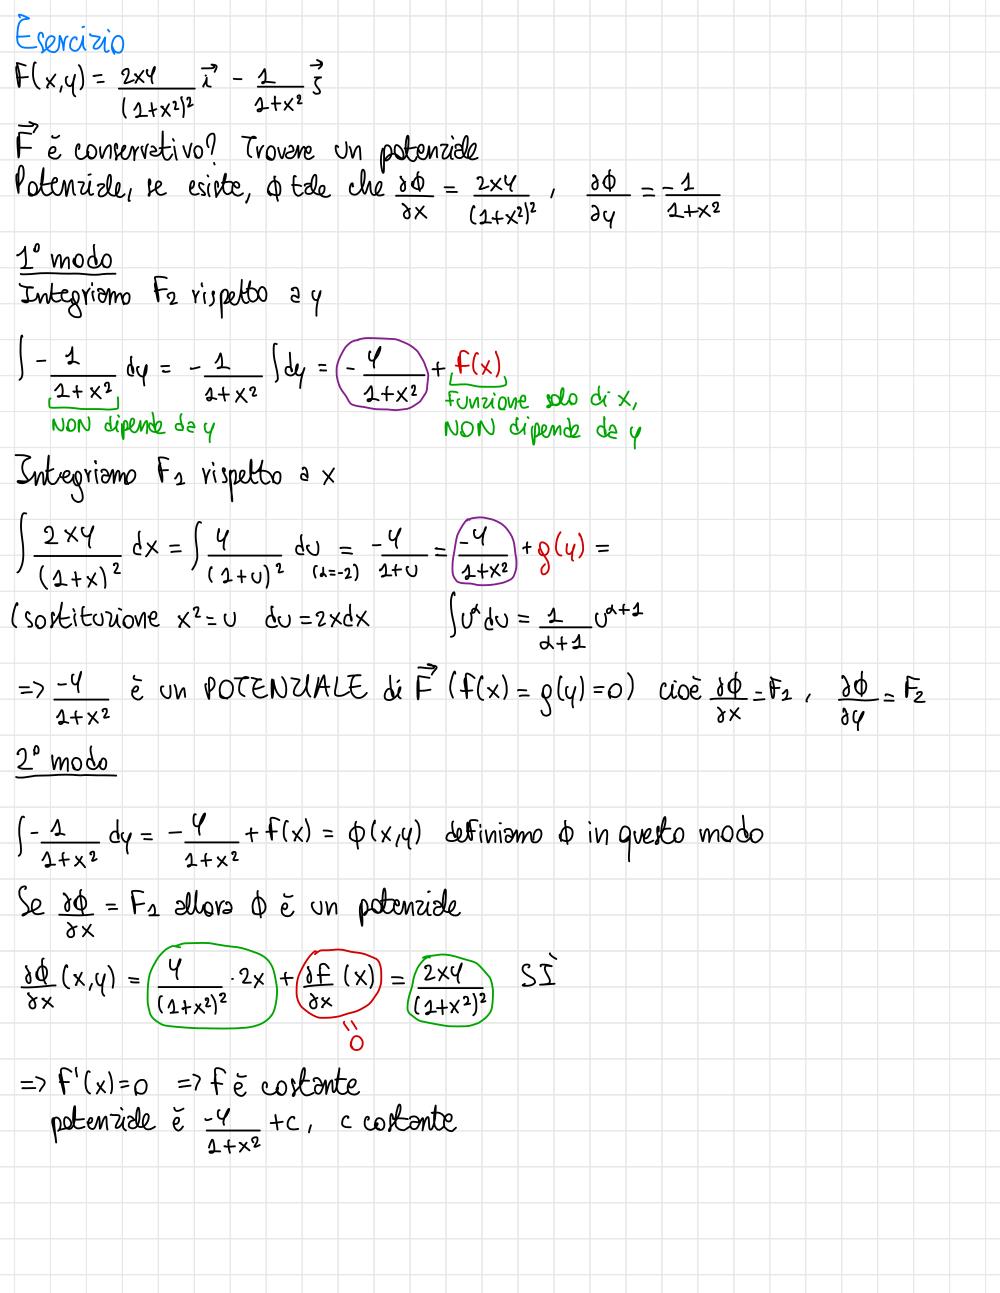 Esercizio
F(x,y) = 2xy/(1+x²)² i⃗ - 1/(1+x²) j⃗
F⃗ è conservativo? Trovare un potenziale
Potenziale, se esiste, ϕ tale che ∂ϕ/∂x = 2xy/(1+x²)² , ∂ϕ/∂y = -1/(1+x²)
1° modo
Integriamo F₂ rispetto a y
∫ - 1/(1+x²) dy = - 1/(1+x²) ∫dy = - y/(1+x²) + f(x)
NON dipende da y
funzione solo di x,
NON dipende da y
Integriamo F₁ rispetto a x
∫ 2xy/(1+x)² dx = ∫ y/(1+u)² du = -y/(1+u) = -y/(1+x²) + g(y) =
(α=-2)
(sostituzione x² = u du = 2xdx ∫u^α du = 1/(α+1) u^(α+1)
=> -y/(1+x²) è un POTENZIALE di F⃗ (f(x) = g(y) = 0) cioè ∂ϕ/∂x = F₁ , ∂ϕ/∂y = F₂
2° modo
∫ - 1/(1+x²) dy = - y/(1+x²) + f(x) = ϕ(x,y) definiamo ϕ in questo modo
Se ∂ϕ/∂x = F₁ allora ϕ è un potenziale
∂ϕ/∂x (x,y) = y/(1+x²)² · 2x + ∂f/∂x (x) = 2xy/(1+x²)² SÌ
=
0
=> f'(x)=0 => f è costante
potenziale è -y/(1+x²) + c, c costante